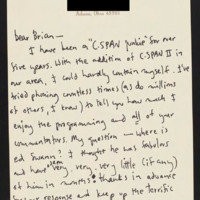 Athens, Ohio 45701
Dear Brian—
I have been a "C-SPAN junkie" for over
five years. With the addition of C-SPAN II in
our area, I could hardly contain myself. I've
tried phoning countless times (as do millions
of others, I know) to tell you how much I
enjoy the programming and all of your
commentators. My question — where is
Ed? I thought he was fabulous
and have seen very, very, very little (if any)
of him in months? Thanks in advance
your response and keep up the terrific